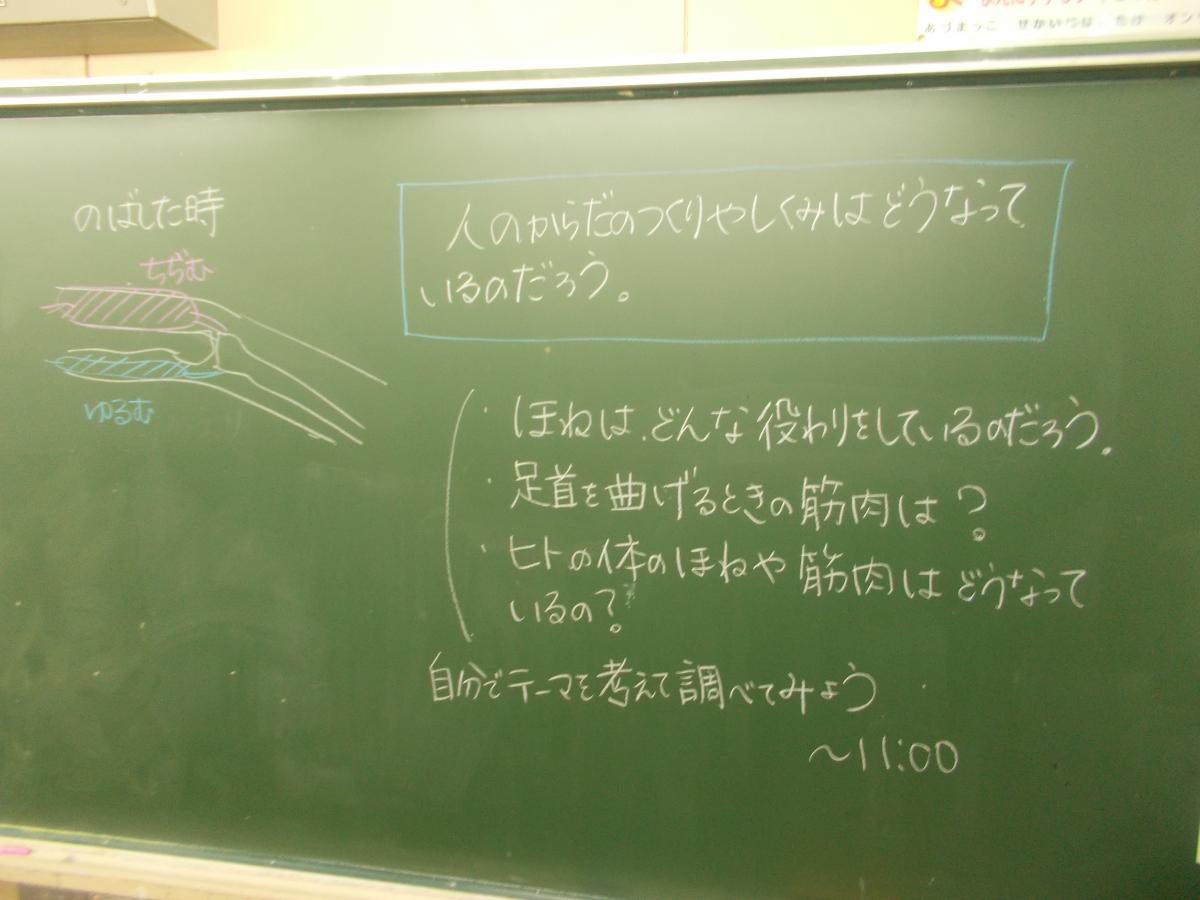 あづまっこ
のばした時
ちぢむ
ゆるむ
人のからだのつくりやしくみはどうなって
いるのだろう。
・ほねは、どんな役わりをしているのだろう。
・足首を曲げるときの筋肉は?
・ヒトの体のほねや筋肉はどうなって
いるの?
自分でテーマを考えて調べてみよう
〜11:00